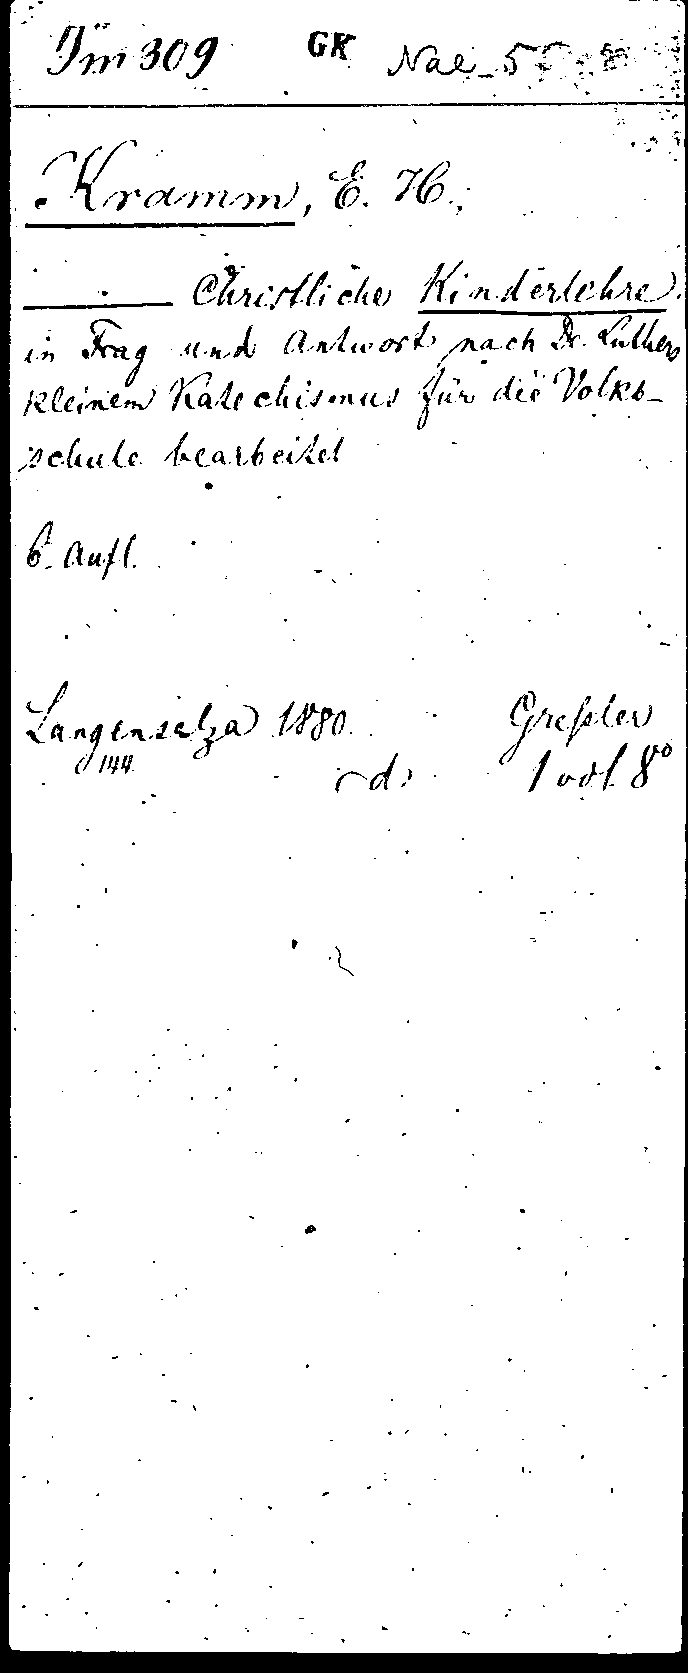 Im 309 GK Nae
Kramm, E. H.,
——— Christliche Kinderlehre
in Frag und Antwort nach Dr. Luthers
kleinem Katechismus für die Volks-
schule bearbeitet
6. Aufl.
Langensalza 1880. Greßler
144 1 vol. 8°